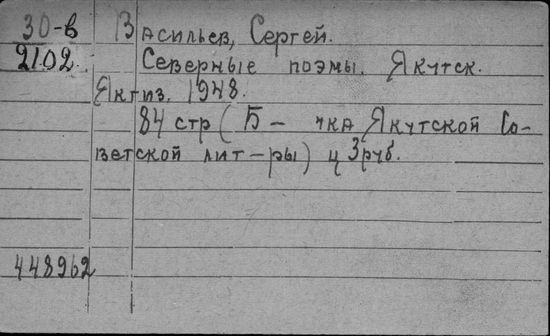 30-в Васильев, Сергей.
2102 Северные поэмы. Якутск.
Якгиз. 1948.
84 стр (Б-чка Якутской Со-
ветской лит-ры) ц 3 руб.
448962